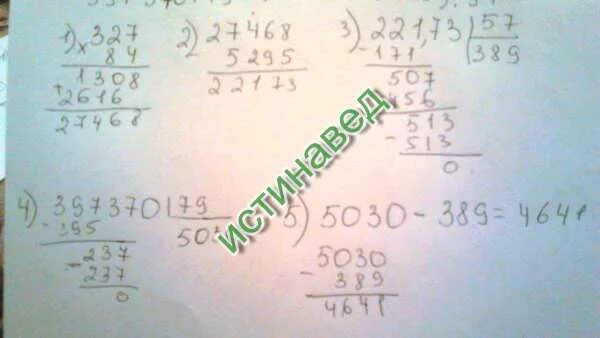 1) × 327
84
1308
+ 2616
27468
2) - 27468
5295
22173
3) 22173 57
- 171 389
507
456
513
- 513
0
4) 397370 79
- 395
- 237
237
0
5) 5030 - 389 = 4641
5030
- 389
4641
истинавед